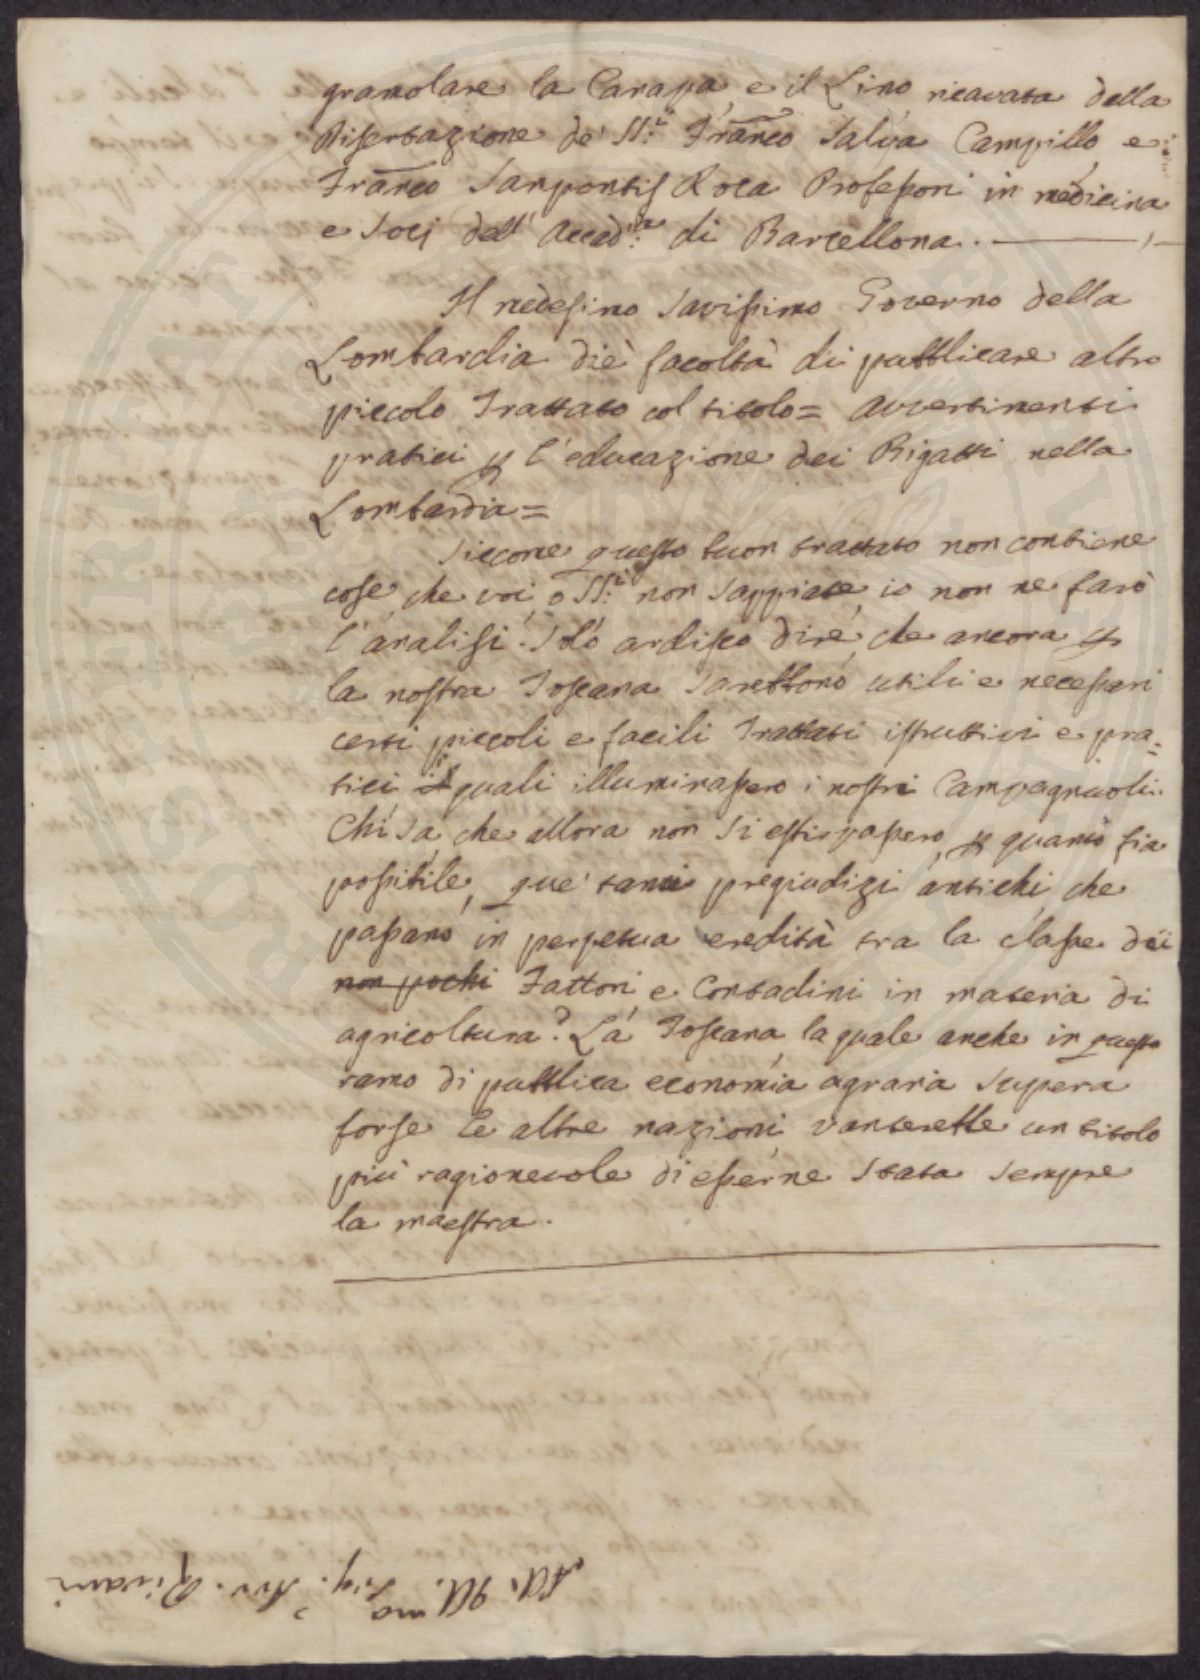 gramolare la Canapa, e il Lino ricavata della
Dissertazione de' SS.ri Franco Salva Campillo, e
Franco Sanpontis Roca Professori in medicina
e Socj dell' Accad.ia di Barcellona. —
Il medesimo Savissimo Governo della
Lombardia diè facoltà di pubblicare altro
piccolo Trattato col titolo = Avvertimenti
pratici p l'educazione dei Bigatti nella
Lombardia =
Siccome questo buon trattato non contiene
cose, che voi, o SS.ri non Sappiate, io non ne farò
l'analisi. Solo ardisco dire, che ancora p
la nostra Toscana Sarebbono utili e necessari
certi piccoli e facili Trattati istruttivi e pra=
tici i quali illuminassero i nostri Campagnuoli.
Chi sa, che allora non si estirpassero, p quanto sia
possibile, que' tanti pregiudizi antichi, che
passano in perpetua eredità tra la classe dei
non pochi Fattori e Contadini in materia di
agricoltura? La Toscana la quale anche in questo
ramo di pubblica economia agraria supera
forse le altre nazioni vanterebbe un titolo
più ragionevole di esserne stata sempre
la maestra.
All' Ill.mo Sig.r Avv. Rivani